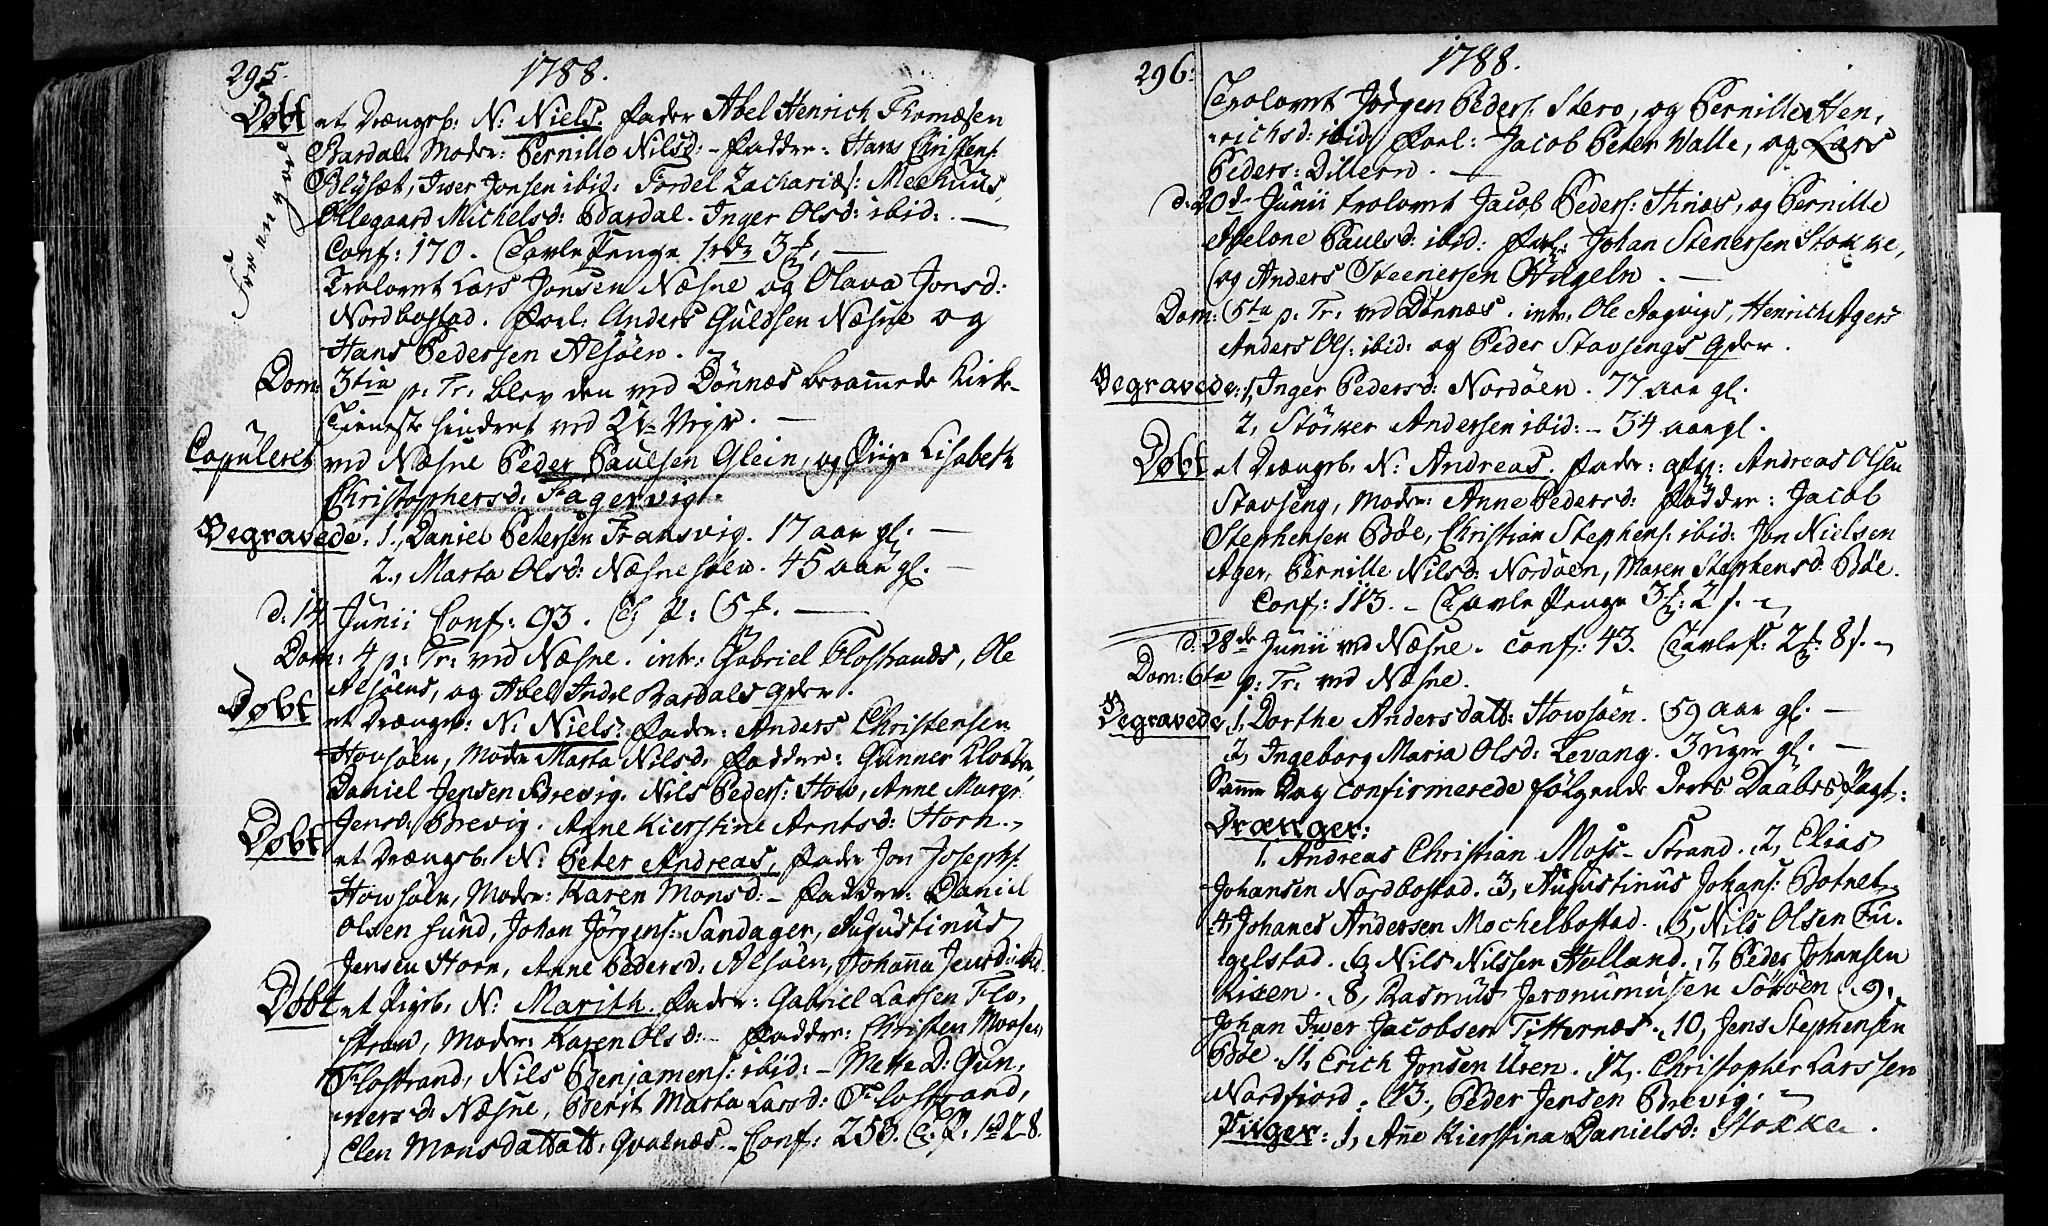 295. 1788.
Døbt et Drængeb: N: Niels. Fader Abel Henrich Thomæsen
Bardal. Moder: Pernille Nilsd: - Faddre: Hans Christens:
Blysæt, Iwer Jonsen ibid: Fordel Zacharies: Meehuus,
Ellegaard Michelsd: Bardal. Inger Olsd: ibid: —
Conf: 170. Tavle Penge 1rdr 3 —
Trolovet Lars Jonsen Næsne og Olava Jonsd:
Nordbostad. Forl: Anders Guldsen Næsne og
Hans Pedersen Alsøen.
Dom: 3tia p: Tr: blev den ved Dønnæs berammede Kirke-
Tieneste hindret ved Uveyr. —
Copuleret ved Næsne Peder Paulsen Glein, og Pige Lisabeth
Christophersd: Fagervig.
Begravede. 1, Daniel Petersen Fransvig. 17 aar gl. —
2, Marta Olsd: Næsnesøen. 45 aar gl. —
d: 14 Junii Conf: 93. T: P: 5 —
Dom: 4 p: Tr: ved Næsne. intr: Gabriel Flostrands, Ole
Alsøens, og Abel Bardals qder.
Døbt et Drængeb: N: Niels. Fader: Anders Christensen
Hovsøen, Moder Marta Nilsd: Faddre: Gunner
Daniel Jensen Brevig. Nils Peders: How, Anne Margr:
Jensd: Brevig. Anne Kierstine Arntsd: Horn.
Døbt et Drængeb: N: Peter Andreas, Fader Jon Josephs:
Howsøen, Moder: Karen Monsd: - Faddre: Daniel
Olsen Sund, Johan Jørgens: Sandager, Augustinus
Jensen Horn, Anne Pedersd: Alsøen, Johanna Jensd: ibid.
Døbt et Pigeb: N: Marith. Fader: Gabriel Larsen Flo,
strand, Moder: Karen Olsd: - Faddre: Christen Monsen
Flostrand, Nils Benjamens: ibid: - Mette D: Gun,
nersd: Næsne, Berit Marta Larsd: Flostrand,
Elen Monsdatt: Qvalnæs. Conf: 253. T: P:
296. 1788.
Trolovet Jørgen Peders: Stero, og Pernille Hen,
richsd: ibid: Forl: Jacob Peter Walle, og Lars
Peders: Dillern. —
d: 20de Junii trolovet Jacob Peders: Thnæs, og Pernille
Abelone Paulsd: ibid: Forl: Johan Stenersen Stokke,
og Anders Steenersen Ougeln. —
Dom: 5ta p: Tr: ved Dönnæs. intr: Ole Aagvigs, Henrich Agers
Anders Ols: ibid: og Peder Stavsengs qder.
Begravede: 1, Inger Pedersd: Nordøen. 77 aar gl.
2, Störker Andersen ibid: - 34 aar gl.
Døbt et Drængeb: N: Andreas. Fader: Andreas Olsen
Stavseng, Moder: Anne Pedersd: Faddre: Jacob
Stephensen Bøe, Christian Stephens: ibid: Jon Nielsen
Ager, Pernille Nilsd: Nordøen, Maren Stephensd: Bøe.
Conf: 113. - Tavle Penge 3 : 2 s.
d: 28de Junii ved Næsne. Conf: 43. Tavle P: 2 8 s.
Dom: 6ta p: Tr: ved Næsne.
Begravede, 1, Dorthe Andersdatt: Howsøen. 59 aar gl. —
2, Ingeborg Maria Olsd: Levang. 3 uger gl. —
Samme Dag confirmerede følgende deres Daabes Pagt:
Drænger:
1. Andreas Christian Moss - Strand. 2, Elias
Johansen Nordbostad. 3, Augustinus Johans: Botnet
4, Johanes Andersen Mochelbostad. 5, Nils Olsen Fu,
gelstad. 6, Nils Nilssen Holland. 7, Peder Johansen
Risen. 8, Rasmus Jeronumusen Sørøen. 9,
Johan Iwer Jacobsen Titternæs. 10, Jens Stephensen
Bøe. 11, Erich Jonsen Uren. 12. Christopher Larssen
Nordfiord. 13, Peder Jensen Brevig.
Piiger: 1, Ane Kierstina Danielsd: Stokka.